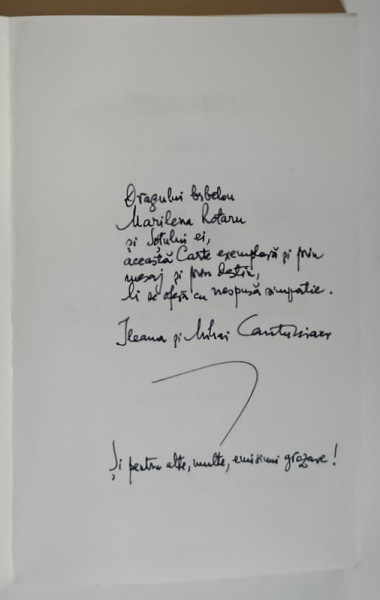 Dragului bibelou
Marilena Rotaru
și Soțului ei,
această Carte exemplară și prin
mesaj și prin destin,
li se oferă cu nespusă simpatie.
Ileana și Mihai Cantuniari
Și pentru alte, multe, emisiuni grozave!